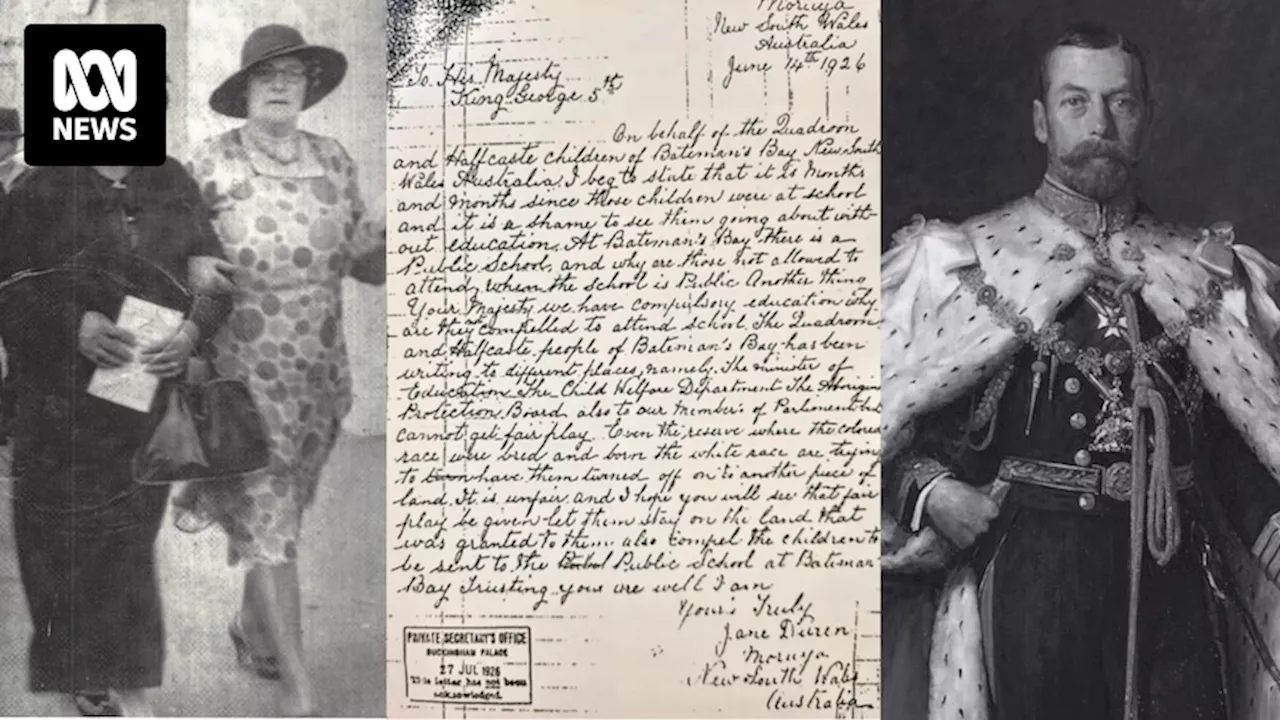 ABC
NEWS
Moruya
New South Wales
Australia
June 14th 1926
To His Majesty
King George 5th
On behalf of the Quadroon
and Halfcaste children of Bateman's Bay New South
Wales Australia. I beg to state that it is months
and months since those children were at school
and it is a shame to see them going about with-
out education. At Bateman's Bay there is a
Public School, and why are those not allowed to
attend, when the school is Public Another thing
Your Majesty we have compulsory education why
are they not compelled to attend school. The Quadroon
and Halfcaste people of Bateman's Bay has been
writing to different places, namely. The minister of
Education The Child Welfare Department The Aborigin
Protection Board also to our member's of Parliament but
cannot get fair play. Even the reserve where the colored
race were bred and born the white race are trying
to have them turned off on to another piece of
land. It is unfair and I hope you will see that fair
play be given let them stay on the land that
was granted to them. also compel the children to
be sent to the Public School at Bateman
Bay Trusting you are well I am
Your's Truly
Jane Duren
Moruya
New South Wales
Australia
PRIVATE SECRETARY'S OFFICE
BUCKINGHAM PALACE
27 JUL 1926
This letter has not been
acknowledged.